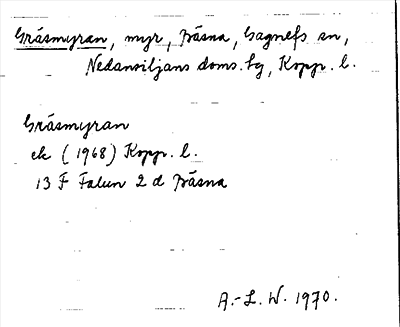 Gräsmyran, myr, Bäsna, Gagnefs sn,
Nedansiljans doms. tg, Kopp. l.
Gräsmyran
ek (1968) Kopp. l.
13 F Falun 2 d Bäsna
A.-L. W. 1970.